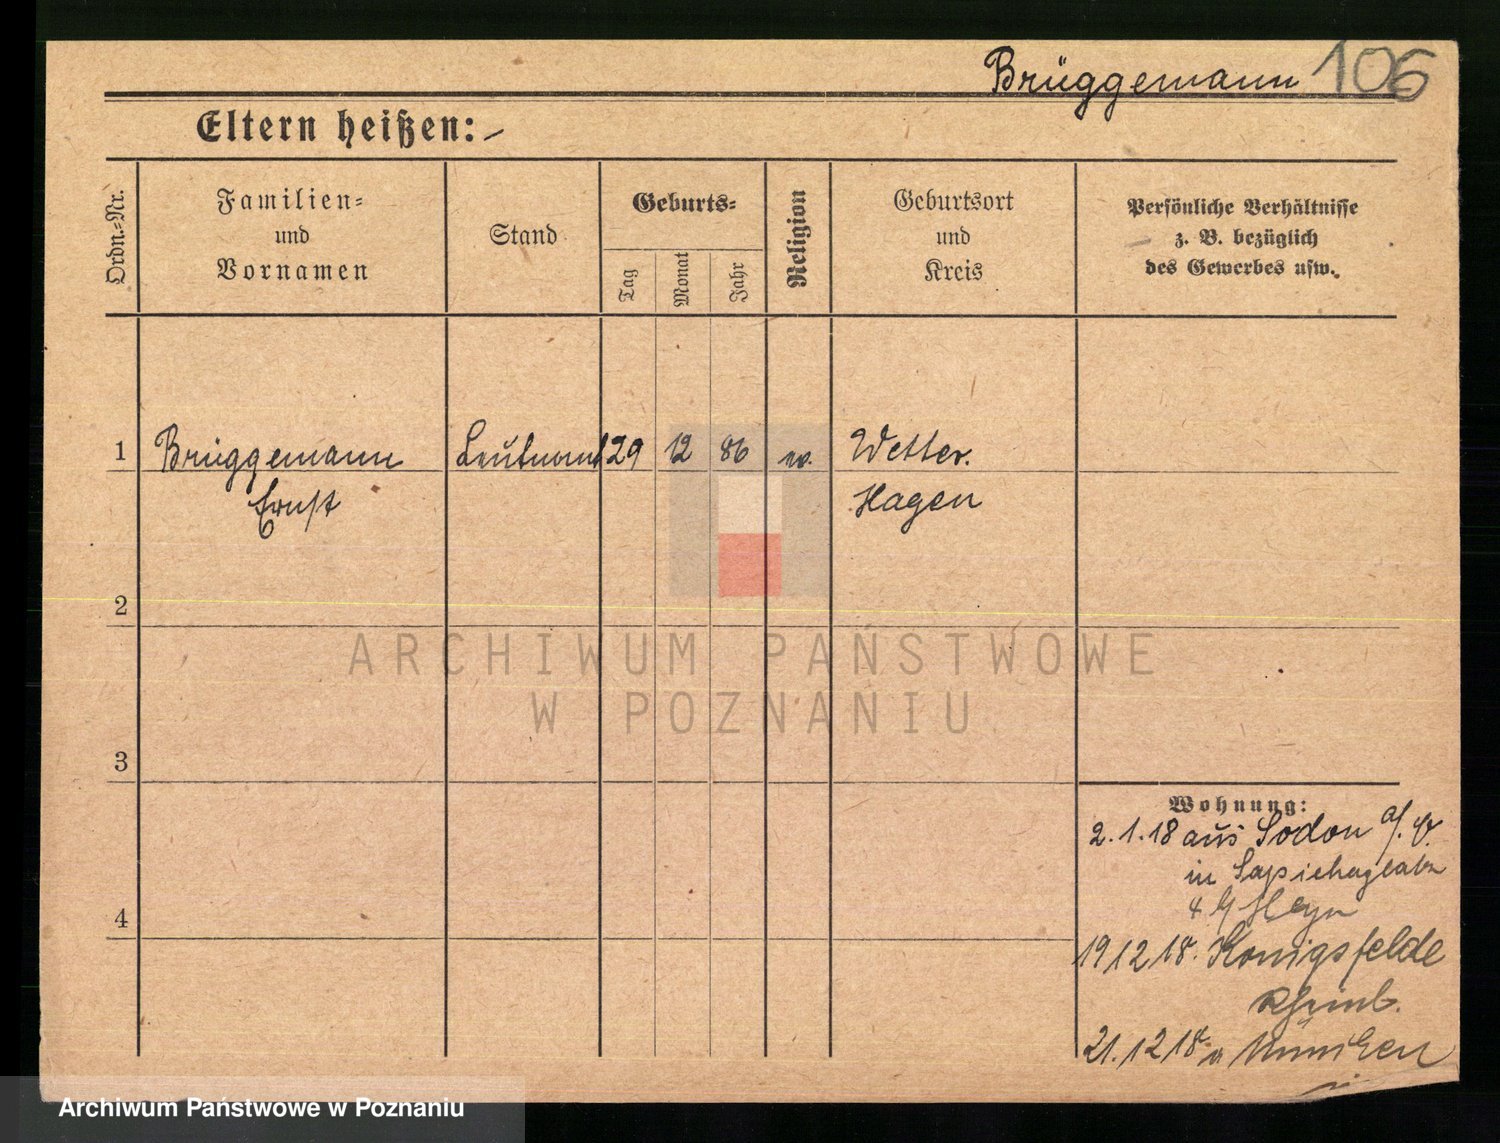 Brüggemann 106
Eltern heißen: -
Ordn.=Nr.
Familien=
und
Vornamen
Stand
Geburts=
Tag
Monat
Jahr
Religion
Geburtsort
und
Kreis
Persönliche Verhältnisse
z. B. bezüglich
des Gewerbes usw.
1 Brüggemann Leutnant 29 12 86 Wetter.
Ernst Hagen
2
3
4
Wohnung:
2.1.18 aus
in
4 Heyn
19 12 18. Königsfelde
21.12 18 n München
ARCHIWUM PAŃSTWOWE
W POZNANIU
Archiwum Państwowe w Poznaniu